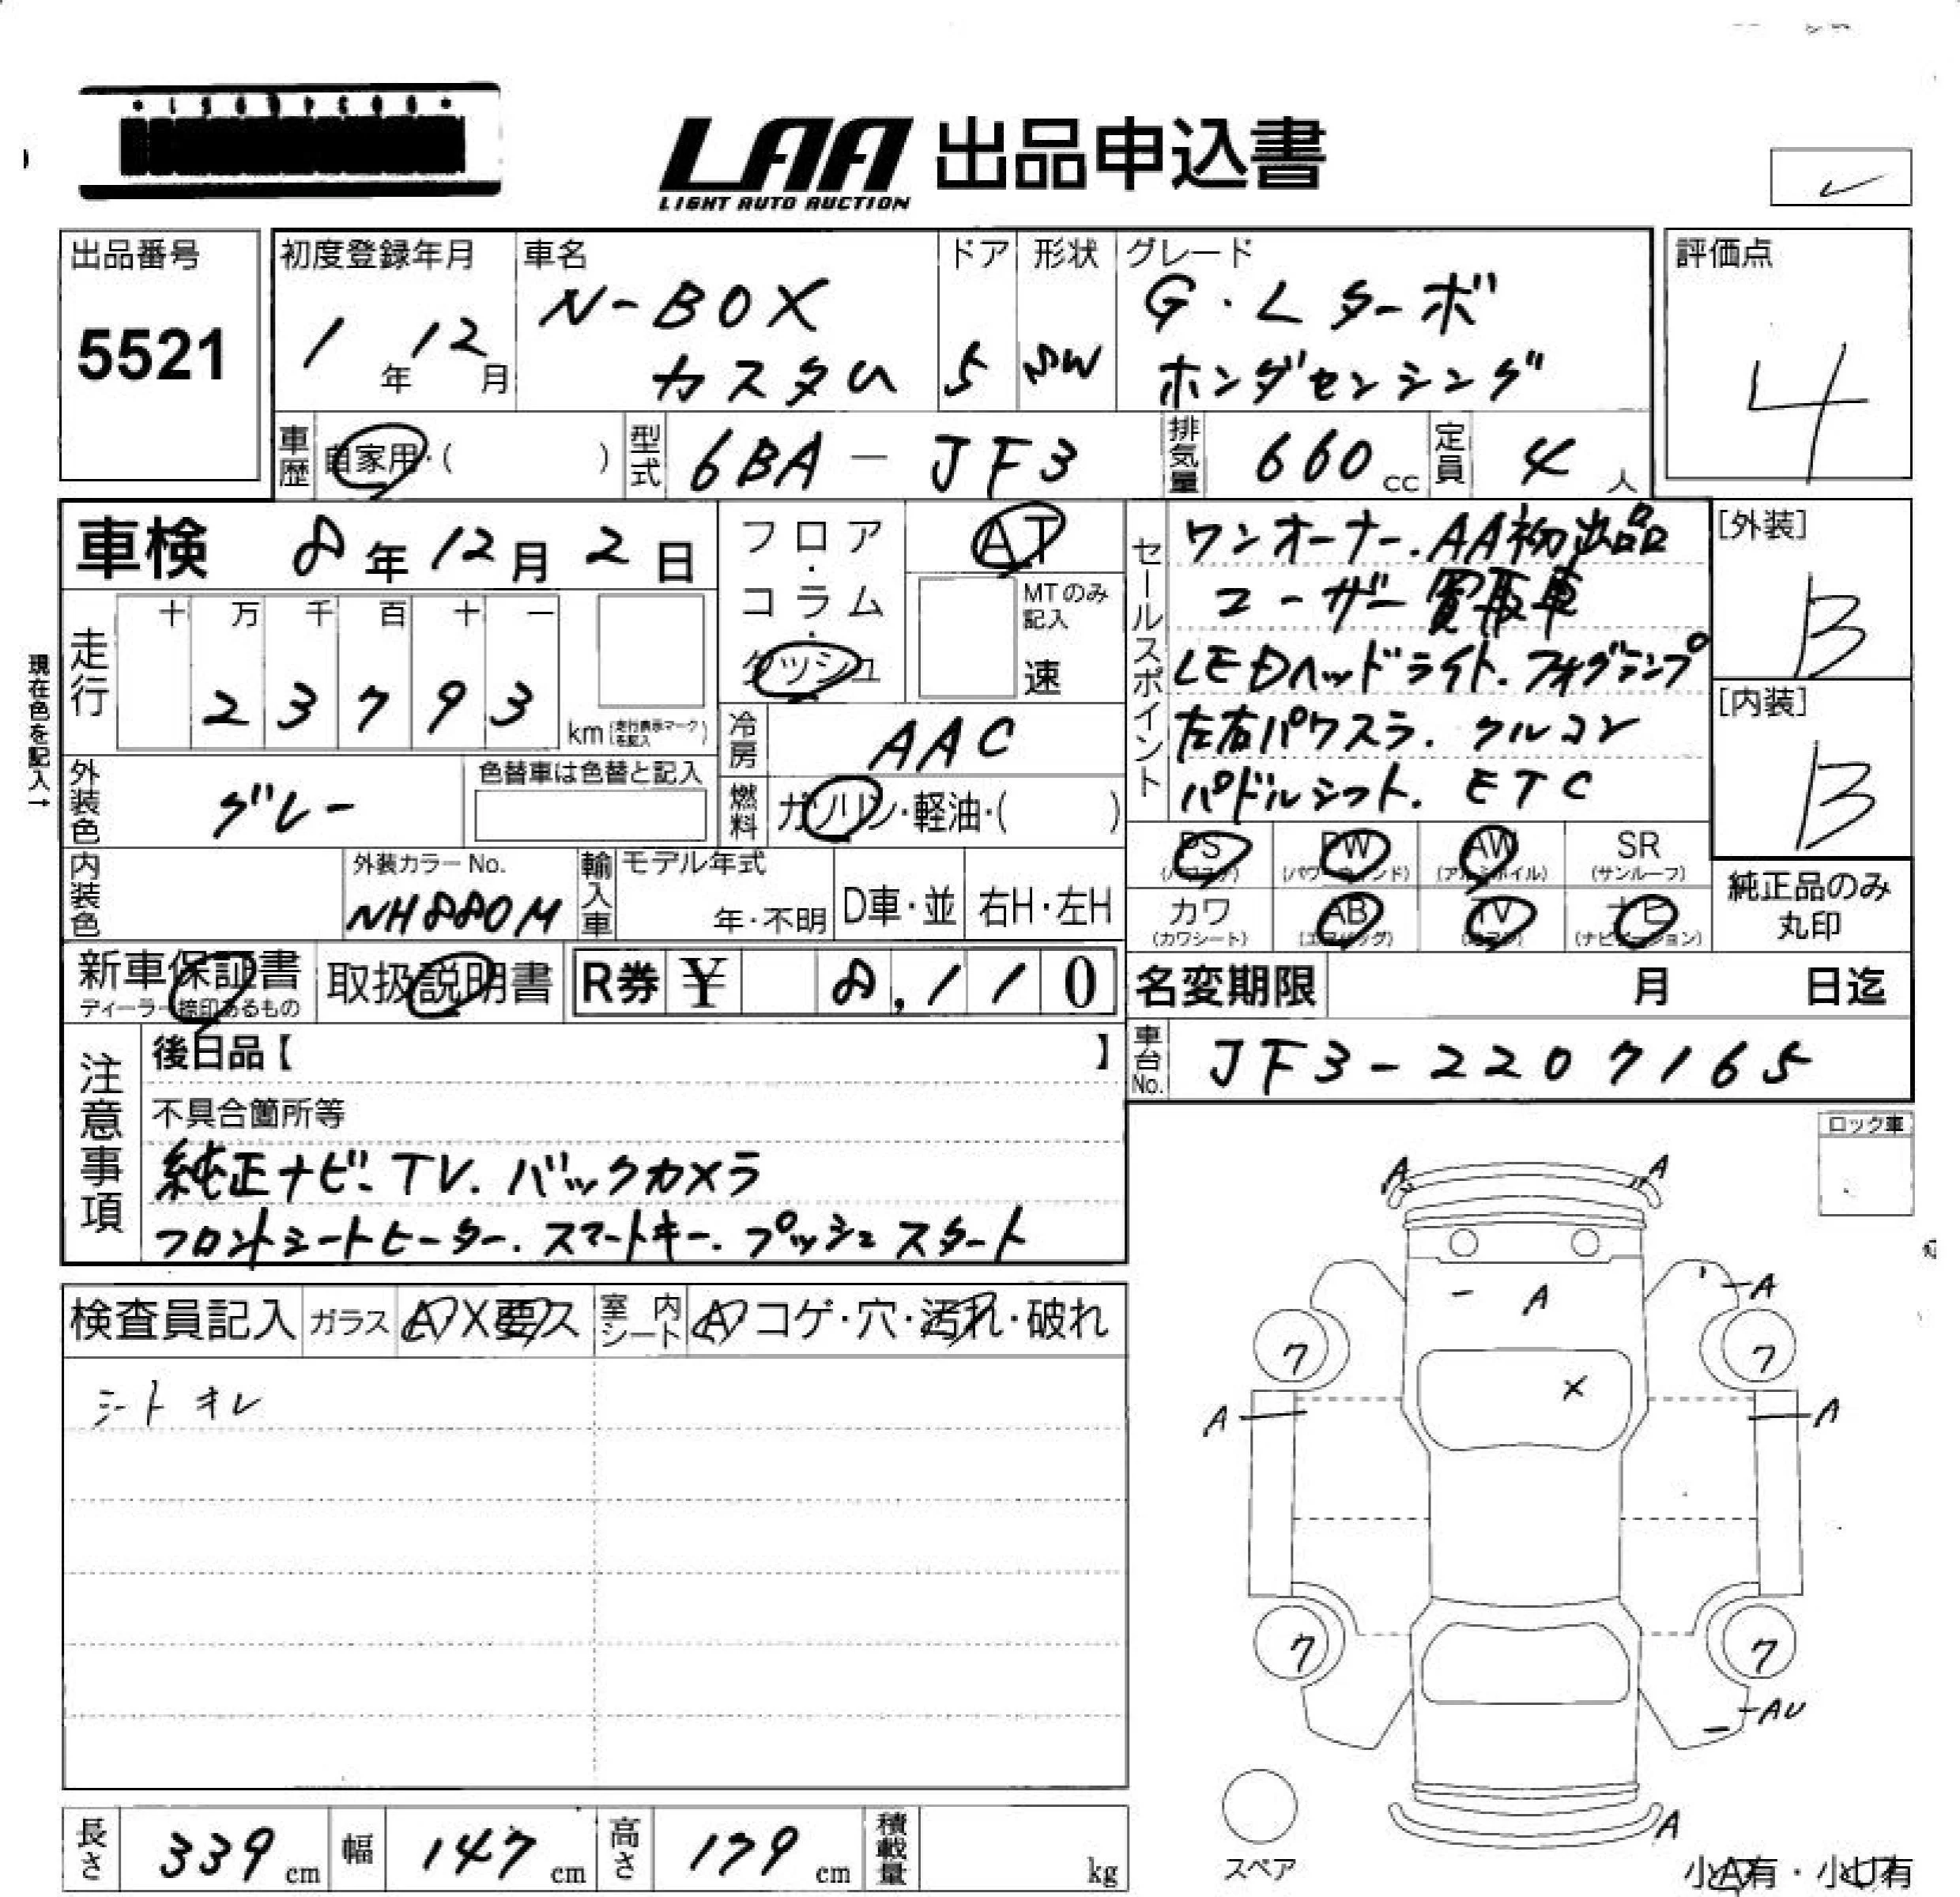 LAA 出品申込書
LIGHT AUTO AUCTION
出品番号
5521
初度登録年月
1年 12月
車名
N-BOX
カスタム
ドア
5
形状
SW
グレード
G・Lターボ
ホンダセンシング
評価点
4
車歴 自家用・( )
型式 6BA-JF3
排気量 660cc
定員 4人
車検 8年12月2日
フロア・コラム・ダッシュ
AT
MTのみ記入
速
セールスポイント
ワンオーナー.AA初出品
ユーザー買取車
LEDヘッドライト.フォグランプ
左右パワスラ.クルコン
パドルシフト.ETC
[外装]
B
[内装]
B
現在色を記入→
走行
十 万 千 百 十 一
2 3 7 9 3
km(走行表示マークを記入)
冷房 AAC
外装色 グレー
色替車は色替と記入
燃料 ガソリン・軽油・( )
内装色
外装カラーNo.
NH880M
輸入車
モデル年式
年・不明
D車・並
右H・左H
PS (パワステ)
PW (パワーウィンド)
AW (アルミホイル)
SR (サンルーフ)
カワ (カワシート)
AB (エアバッグ)
TV (テレビ)
ナビ (ナビゲーション)
純正品のみ
丸印
新車保証書
ディーラー捺印あるもの
取扱説明書
R券 ¥ 8,110
名変期限 月 日迄
注意事項
後日品【 】
車台No. JF3-2207165
不具合箇所等
純正ナビ.TV.バックカメラ
フロントシートヒーター.スマートキー.プッシュスタート
ロック車
検査員記入 ガラス A X 要ス
室内シート A コゲ・穴・汚れ・破れ
シートキレ
A A
A
A
7 7
X
A A
7 7
AU
A
スペア
小A有・小U有
長さ 339cm
幅 147cm
高さ 179cm
積載量 kg